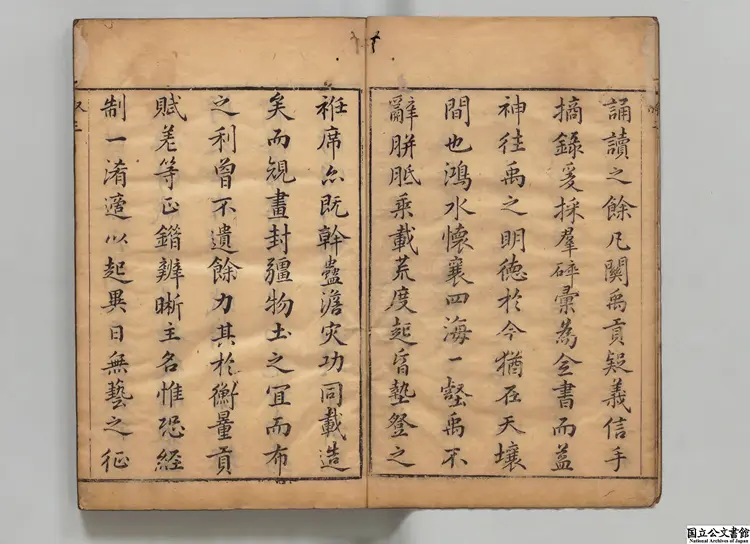 誦讀之餘凡關禹貢疑義信手
摘錄爰採羣碎彙為全書而益
神往禹之明德於今猶在天壤
間也鴻水懷襄四海一壑禹不
辭胼胝乘載荒度起昏墊登之
袵席亦既幹蠱澹災功同載造
矣而規畫封疆物土之宜而布
之利曾不遺餘力其於衡量貢
賦差等正錯辨晰主名惟恐經
制一淆適以起異日無藝之征
国立公文書館
National Archives of Japan